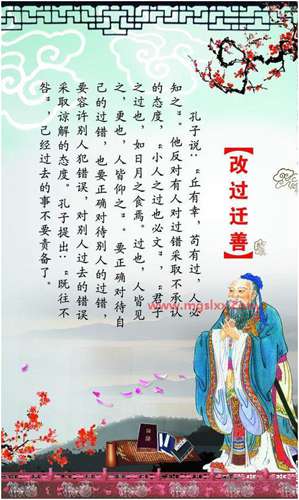 【改过迁善】
孔子说：“丘有幸，苟有过，人必
知之”。他反对有人对过错采取不承认
的态度，“小人之过也必文”，“君子
之过也，如日月之食焉。过也，人皆见
之，更也，人皆仰之”。要正确对待自
己的过错，也要正确对待别人的过错，
要容许别人犯错误，对别人过去的错误
采取谅解的态度。孔子提出：“既往不
咎”，已经过去的事不要责备了。